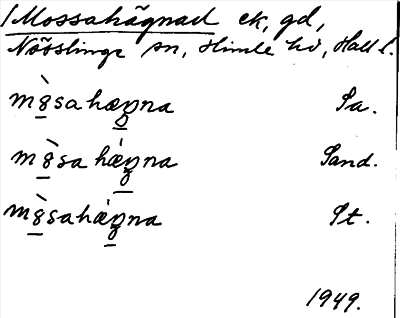 Mossahägnad ek, gd,
Nösslinge sn, Himle hd, Hall l.
mò̱sahæŋna Sa.
mò̱sahǽŋna Sand.
mò̱sahǽŋna St.
1949.